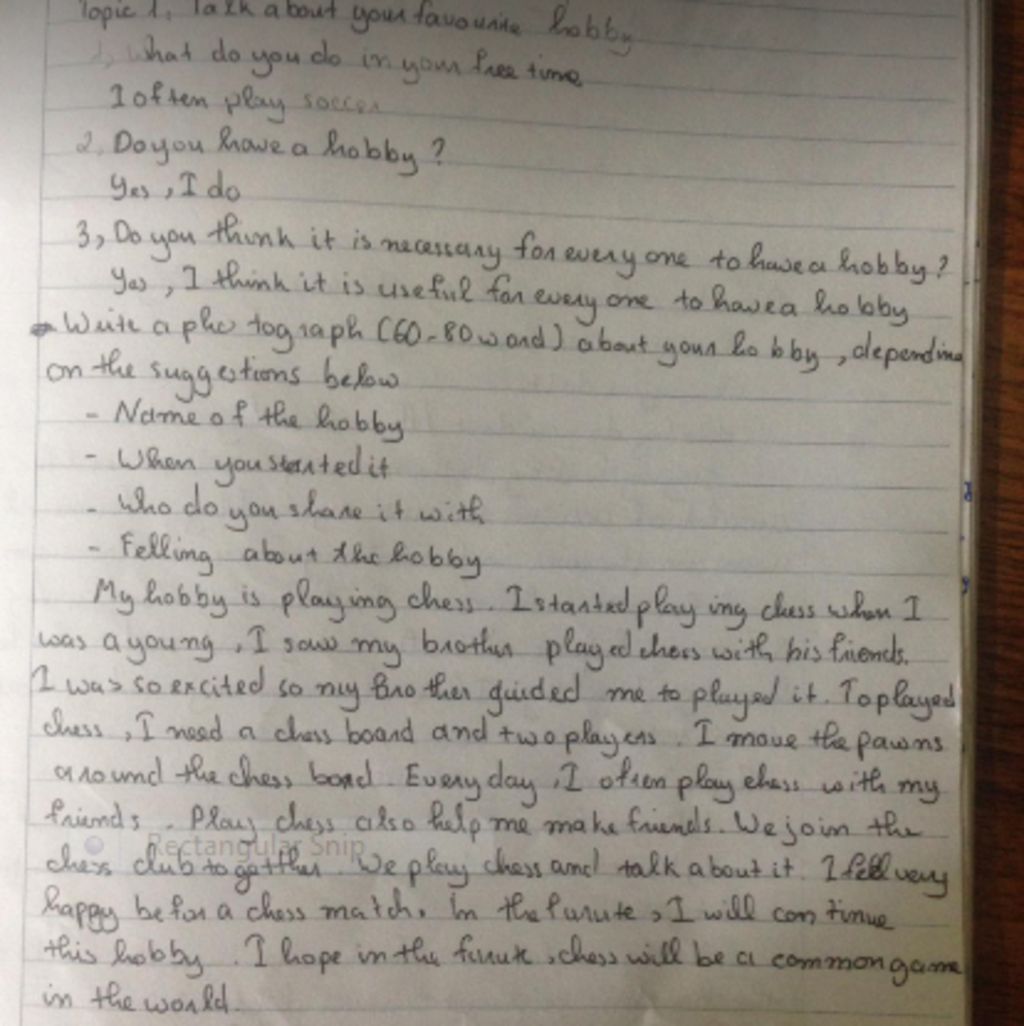 Topic 1. Talk about your favourite hobby
1, What do you do in your free time
I often play soccer
2, Do you have a hobby ?
Yes , I do
3, Do you think it is necessary for every one to have a hobby ?
Yes , I think it is useful for every one to have a hobby
Write a photograph (60-80 word) about your hobby , depending
on the suggestions below
- Name of the hobby
- When you started it
- Who do you share it with
- Felling about the hobby
My hobby is playing chess . I started playing chess when I
was a young , I saw my brother played chess with his friends.
I was so excited so my brother guided me to played it . To played
chess , I need a chess board and two players . I move the pawns
around the chess boad . Every day , I often play chess with my
friends . Plays chess also help me make friends. We join the
Rectangular Snip
chess club togetther . We play chess and talk about it . I fell very
happy befor a chess match. In the , I will continue
this hobby . I hope in the , chess will be a common game
in the world .